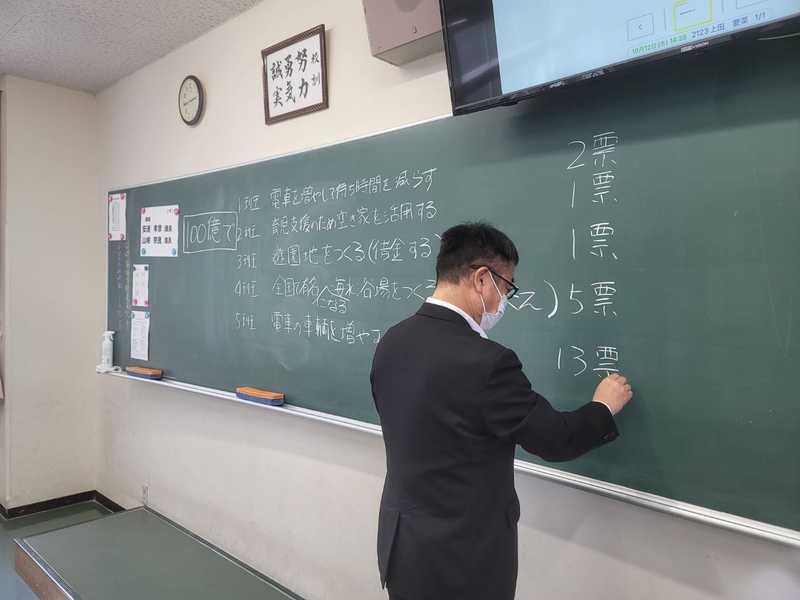 校訓
努力
勇気
誠実
10月12日(木) 14:38 2123 上田 愛菜 1/1
100億で
1班 電車を増やして待ち時間を減らす 2票
2班 育児支援のため空き家を活用する 1票
3班 遊園地をつくる(借金する) 1票
4班 全国で有名になる 浴場をつくる え) 5票
5班 電車の車輌を増やす 13票